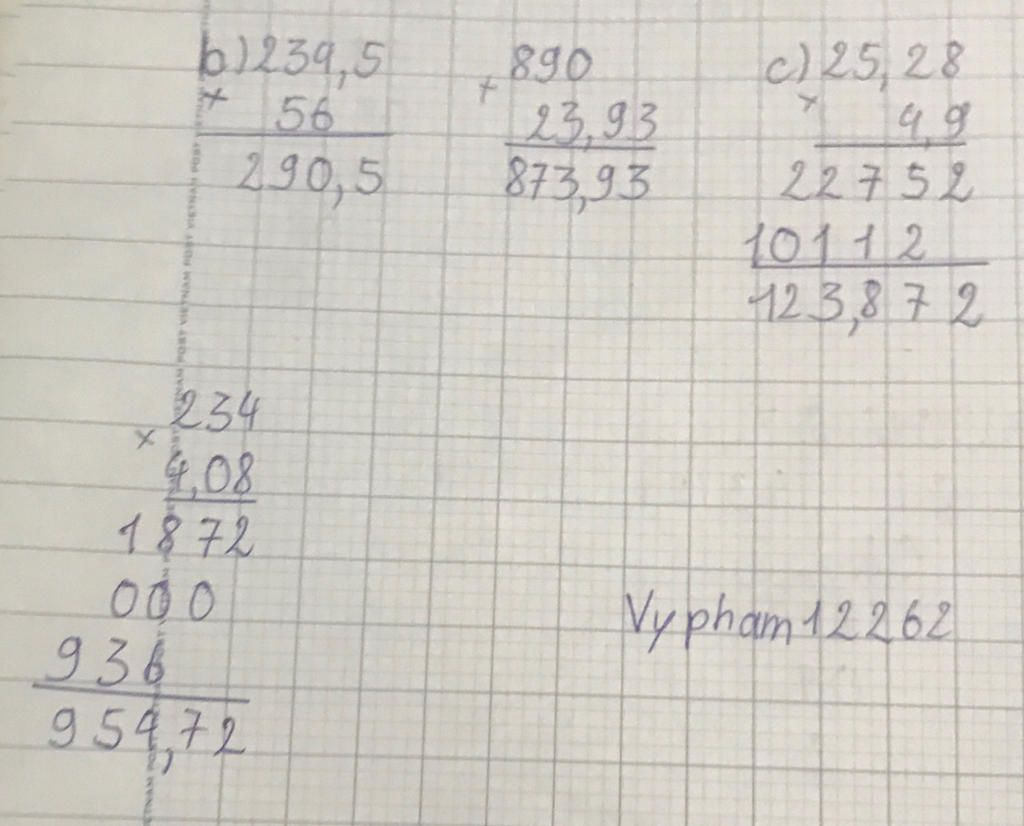 b) 234,5
×
56
290,5
890
+
23,93
873,93
c) 25,28
×
4,9
22752
10112
123,872
234
×
4,08
1872
000
936
954,72
Vypham12262